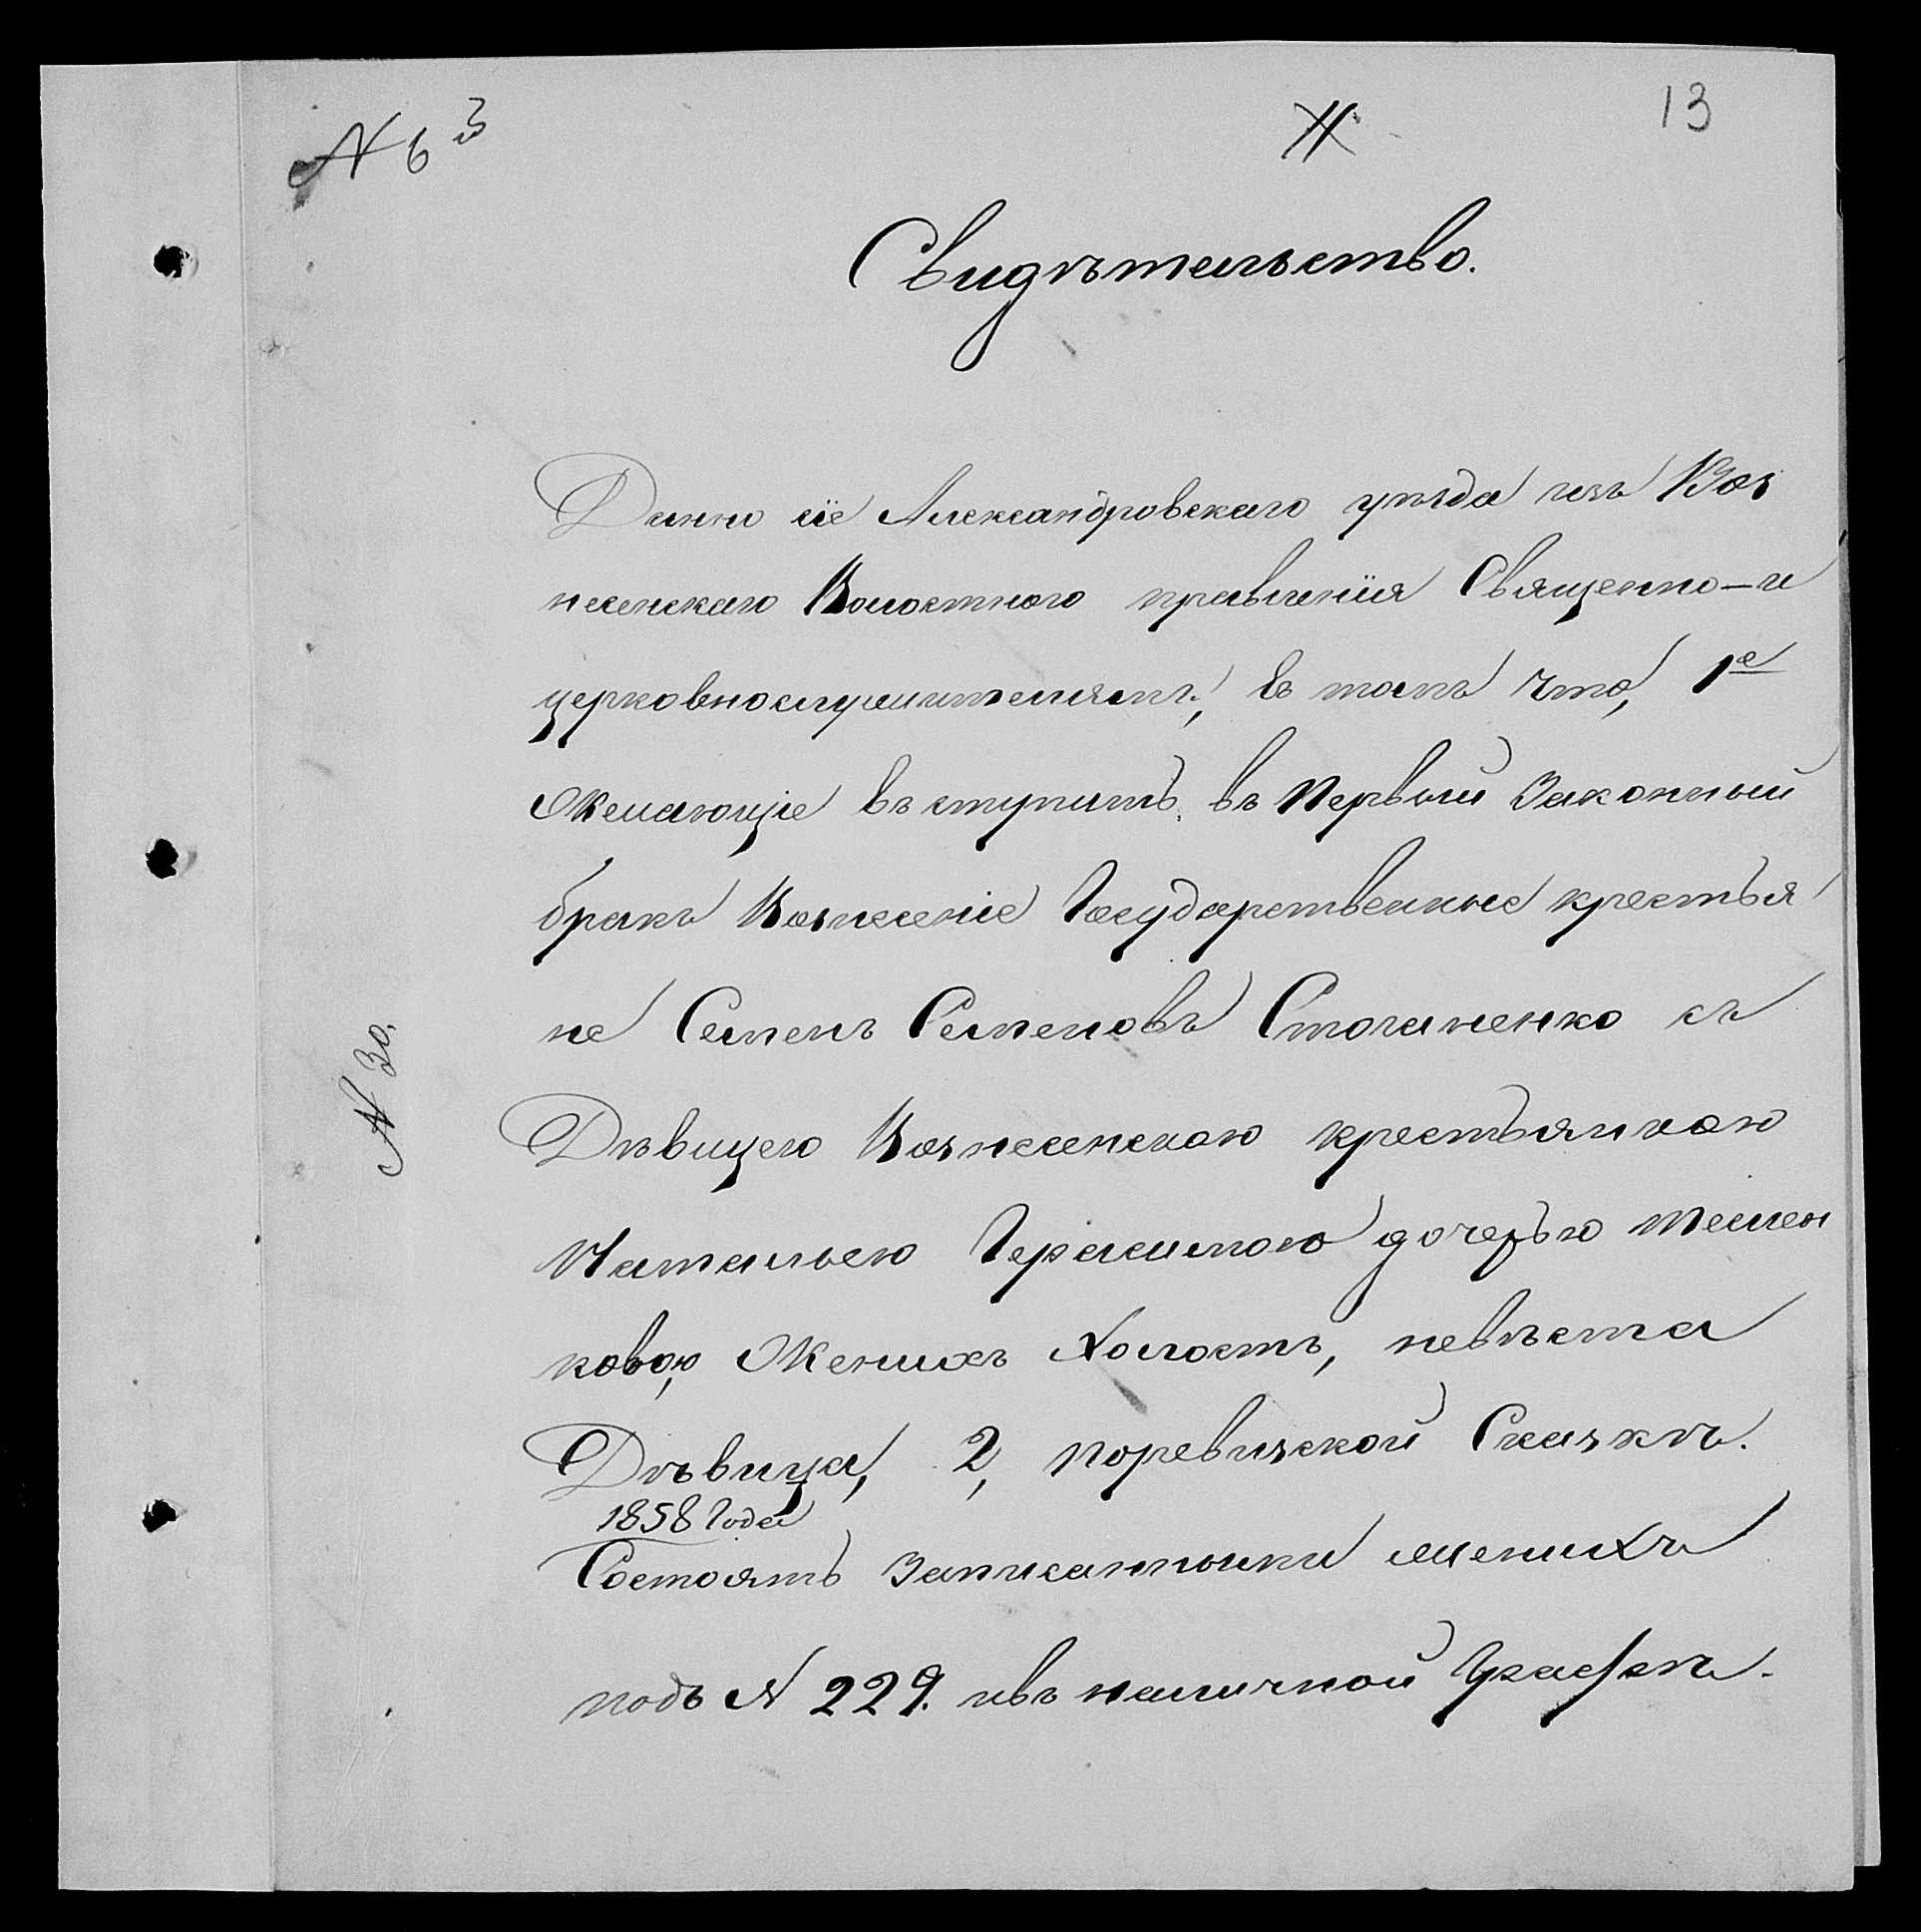 N 63
13
Свидѣтельство.
Данно сіе Александровскаго уѣзда изъ Воз
несенскаго Волостного правленія Священно-и
церковнослужителямъ, въ томъ что, 1е
Желающіе въступить въ первый законный
бракъ Вознесеніе Государственные крестья
не Семенъ Семеновъ
съ
Дѣвицею Вознесенскою крестьянкою
Натальею Герасимою дочерью Темен
ковою, Женихъ Холостъ, невѣста
Дѣвица, 2, поревизской Сказкѣ.
1858 Года
Состоятъ Записанными женихъ
N 30.
подъ N 229. ивъ наличной Графѣ.